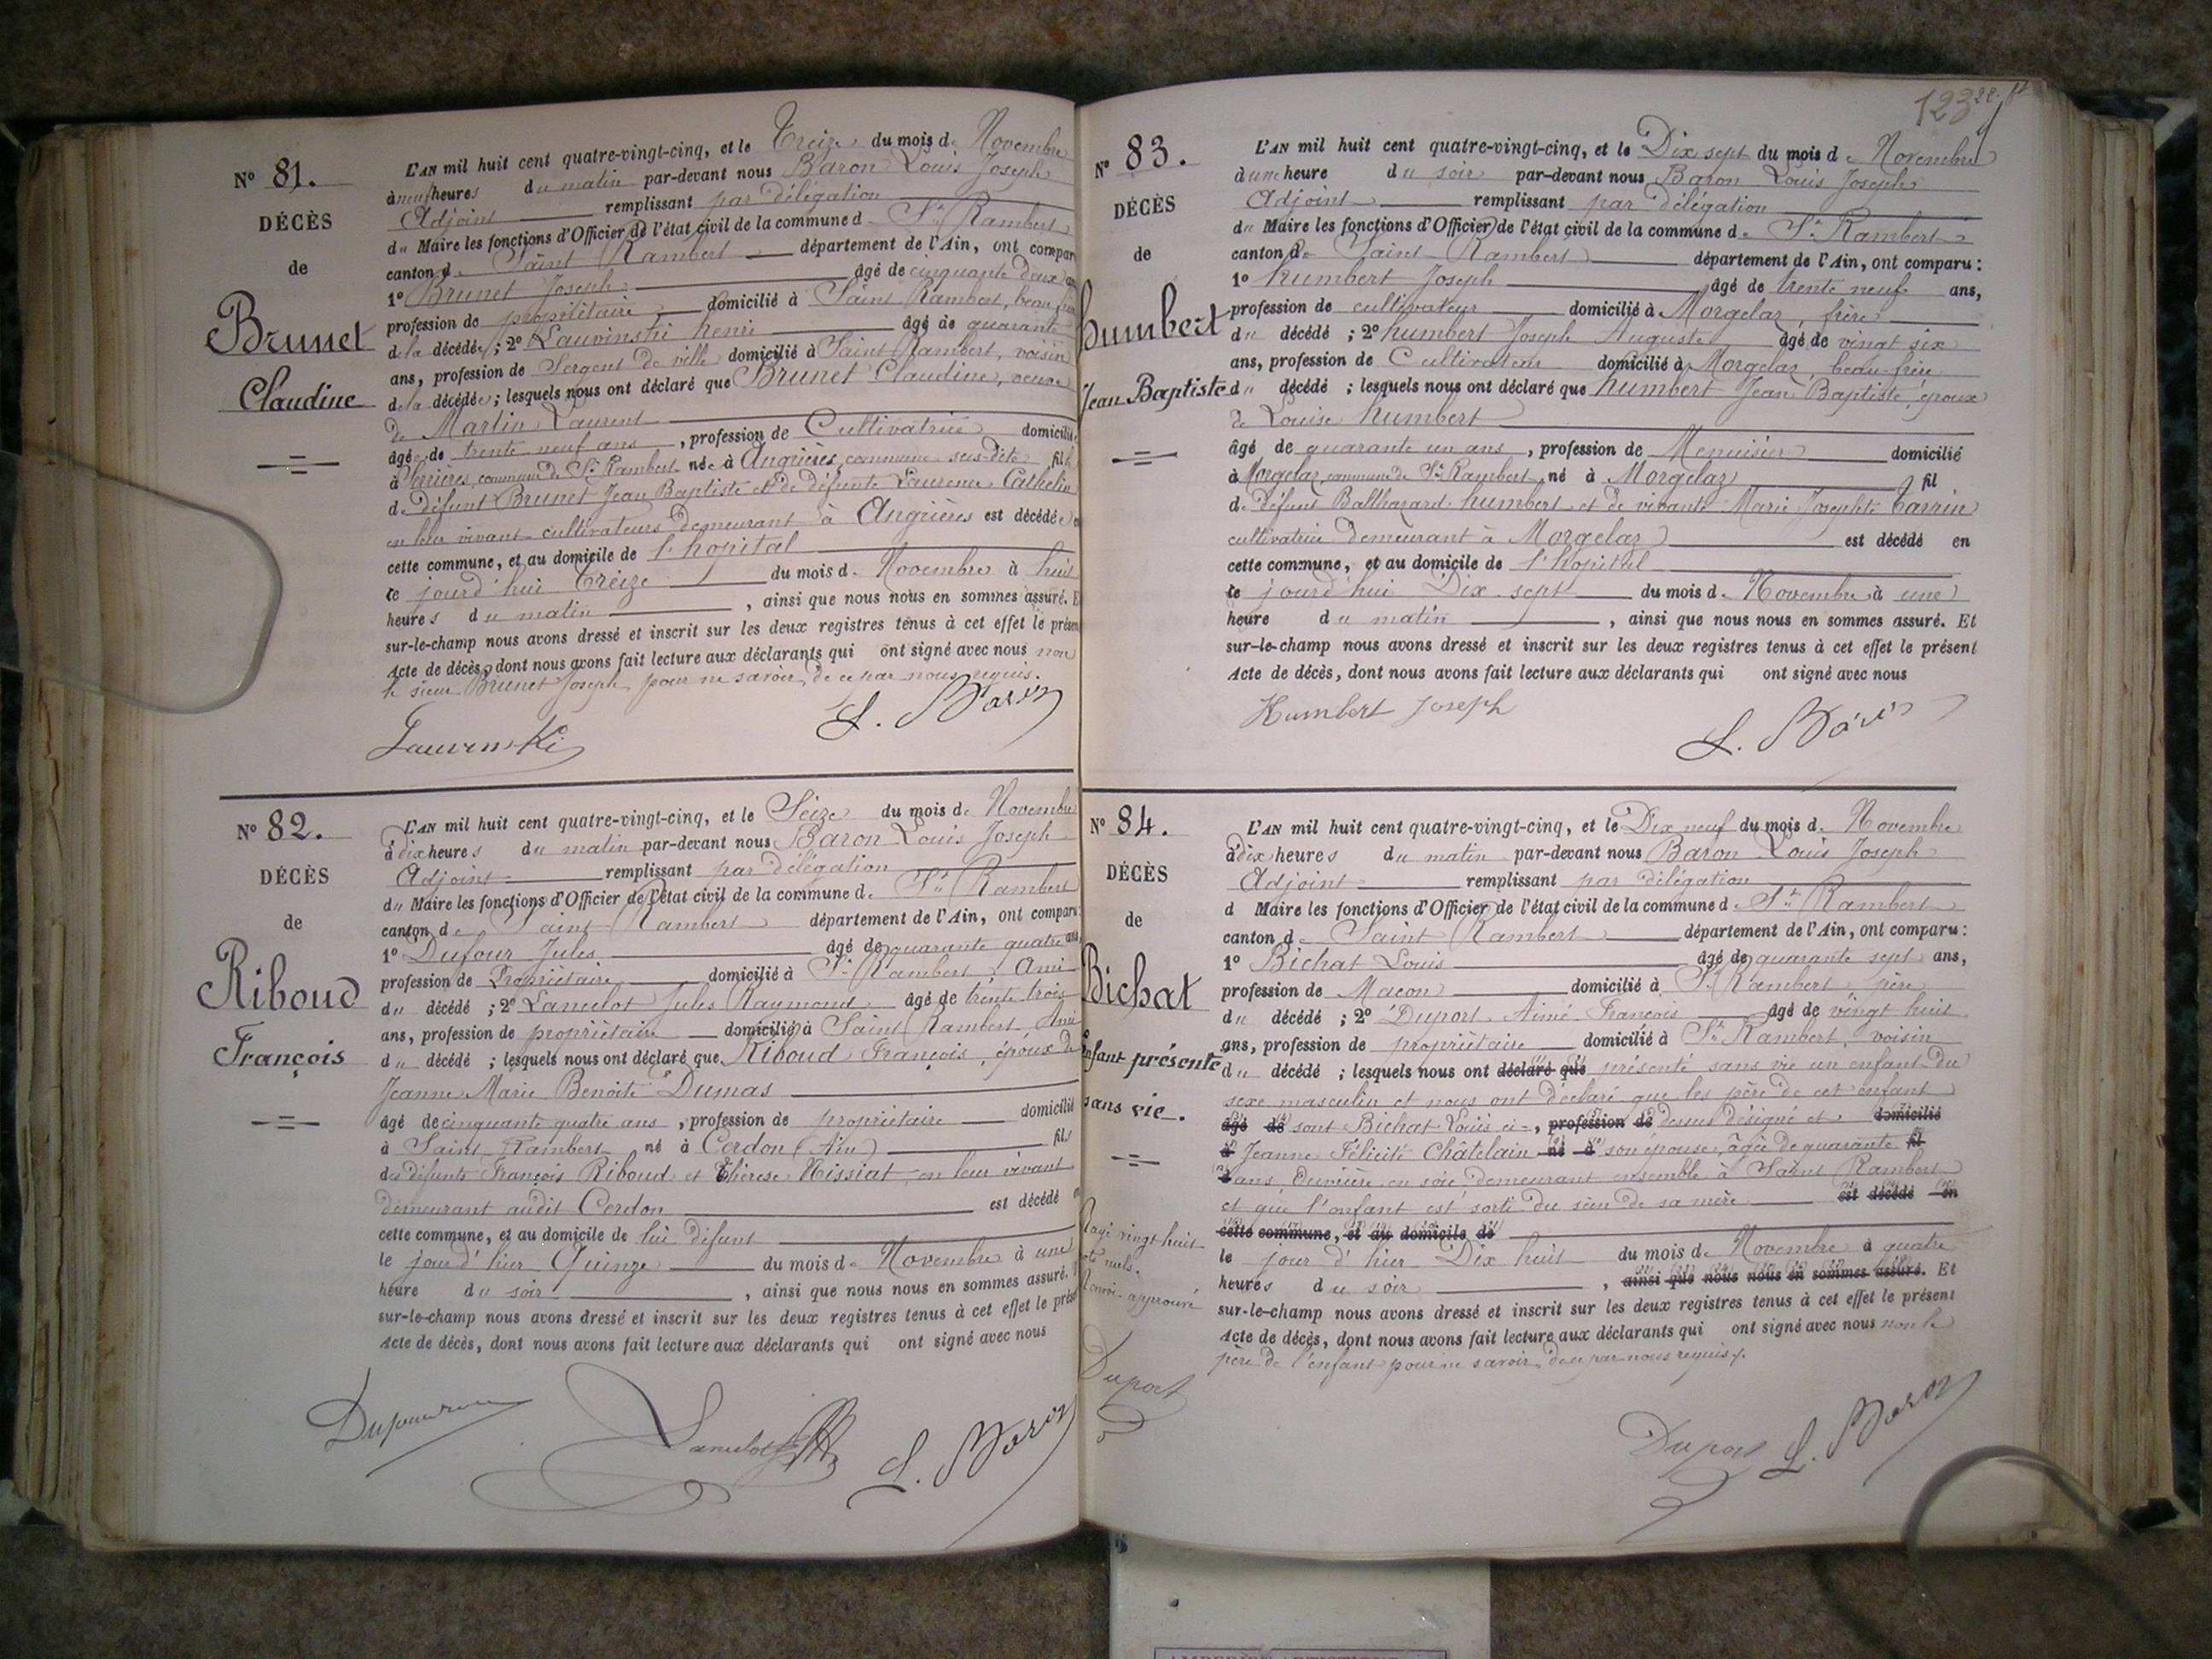 N° 81.
DÉCÈS
de
Brunet
Claudine
L'AN mil huit cent quatre-vingt-cinq, et le Treize du mois de Novembre
à neuf heures du matin par-devant nous Baron Louis Joseph
Adjoint remplissant par délégation
du Maire les fonctions d'Officier de l'état civil de la commune de St Rambert
canton de Saint Rambert département de l'Ain, ont compar
1° Brunet Joseph âgé de cinquante deux ans
profession de propriétaire domicilié à Saint Rambert, beau frère
de la décédée; 2° Lauvinski henri âgé de quarante
ans, profession de Sergent de ville domicilié à Saint Rambert, voisin
de la décédée; lesquels nous ont déclaré que Brunet Claudine, veuve
de Martin Laurent
âgée de trente neuf ans, profession de Cultivatrice domiciliée
à Serrières, commune de St Rambert née à Angrières, commune sus-dite fille
de défunt Brunet Jean Baptiste et de défunte Laurence Cathelin
en leur vivant cultivateurs demeurant à Angrières est décédée en
cette commune, et au domicile de l'hopital
le jourd'hui Treize du mois de Novembre à huit
heures du matin, ainsi que nous nous en sommes assuré. E
sur-le-champ nous avons dressé et inscrit sur les deux registres tenus à cet effet le présen
Acte de décès, dont nous avons fait lecture aux déclarants qui ont signé avec nous non
le sieur Brunet Joseph pour ne savoir, de ce par nous requis.
Lauvinski
L. Baron
N° 82.
DÉCÈS
de
Riboud
François
L'AN mil huit cent quatre-vingt-cinq, et le Seize du mois de Novembre
à dix heures du matin par-devant nous Baron Louis Joseph
Adjoint remplissant par délégation
du Maire les fonctions d'Officier de l'état civil de la commune de St Rambert
canton de Saint Rambert département de l'Ain, ont comparu:
1° Dufour Jules âgé de quarante quatre ans
profession de Propriétaire domicilié à St Rambert, Ami
du décédé; 2° Lancelot Jules Raymond âgé de trente trois
ans, profession de propriétaire domicilié à Saint Rambert Ami
du décédé; lesquels nous ont déclaré que Riboud François, époux de
Jeanne Marie Benoite Dumas
âgé de cinquante quatre ans, profession de propriétaire domicilié
à Saint Rambert né à Cerdon (Ain) fils
des défunts François Riboud et Thérèse Nissiat en leur vivant
demeurant audit Cerdon est décédé en
cette commune, et au domicile de lui défunt
le jour d'hier Quinze du mois de Novembre à une
heure du soir, ainsi que nous nous en sommes assuré.
sur-le-champ nous avons dressé et inscrit sur les deux registres tenus à cet effet le prése
Acte de décès, dont nous avons fait lecture aux déclarants qui ont signé avec nous
Lancelot
L. Baron
123
N° 83.
DÉCÈS
de
humbert
Jean Baptiste
L'AN mil huit cent quatre-vingt-cinq, et le Dix sept du mois de Novembre
à une heure du soir par-devant nous Baron Louis Joseph
Adjoint remplissant par délégation
du Maire les fonctions d'Officier de l'état civil de la commune de St Rambert
canton de Saint Rambert département de l'Ain, ont comparu:
1° humbert Joseph âgé de trente neuf ans,
profession de cultivateur domicilié à Morgelaz, frère
du décédé; 2° humbert Joseph Auguste âgé de vingt six
ans, profession de Cultivateur domicilié à Morgelaz, beau-frère
du décédé; lesquels nous ont déclaré que humbert Jean Baptiste, époux
de Louise humbert
âgé de quarante un ans, profession de Menuisier domicilié
à Morgelaz, commune de St Rambert né à Morgelaz fil
de défunt Balthazard humbert et de vivante Marie Josephte Tarrin
cultivatrice demeurant à Morgelaz est décédé en
cette commune, et au domicile de l'hopital
le jourd'hui Dix sept du mois de Novembre à une
heure du matin, ainsi que nous nous en sommes assuré. Et
sur-le-champ nous avons dressé et inscrit sur les deux registres tenus à cet effet le présent
Acte de décès, dont nous avons fait lecture aux déclarants qui ont signé avec nous
Humbert Joseph
L. Baron
N° 84.
DÉCÈS
de
Bichat
Enfant présenté
sans vie.
Rayé vingt huit
mots nuls.
Renvoi approuvé
Duport
L'AN mil huit cent quatre-vingt-cinq, et le Dix neuf du mois de Novembre
à dix heures du matin par-devant nous Baron Louis Joseph
Adjoint remplissant par délégation
d Maire les fonctions d'Officier de l'état civil de la commune de St Rambert
canton de Saint Rambert département de l'Ain, ont comparu:
1° Bichat Louis âgé de quarante sept ans,
profession de Macon domicilié à St Rambert, père
du décédé; 2° Duport Aimé François âgé de vingt huit
ans, profession de propriétaire domicilié à St Rambert, voisin
du décédé; lesquels nous ont déclaré que présenté sans vie un enfant du
sexe masculin et nous ont déclaré que les père de cet enfant
âgé de sont Bichat Louis ci-, profession de dessus désigné et domicilié
à Jeanne Félicité Châtelain né à son épouse, âgée de quarante fil
d ans Ouvrière en soie demeurant ensemble à Saint Rambert
et que l'enfant est sorti du sein de sa mère est décédé en
cette commune, et au domicile de
le jour d'hier Dix huit du mois de Novembre à quatre
heures du soir, ainsi que nous nous en sommes assuré. Et
sur-le-champ nous avons dressé et inscrit sur les deux registres tenus à cet effet le présent
Acte de décès, dont nous avons fait lecture aux déclarants qui ont signé avec nous non le
père de l'enfant pour ne savoir, de ce par nous requis.
Duport
L. Baron